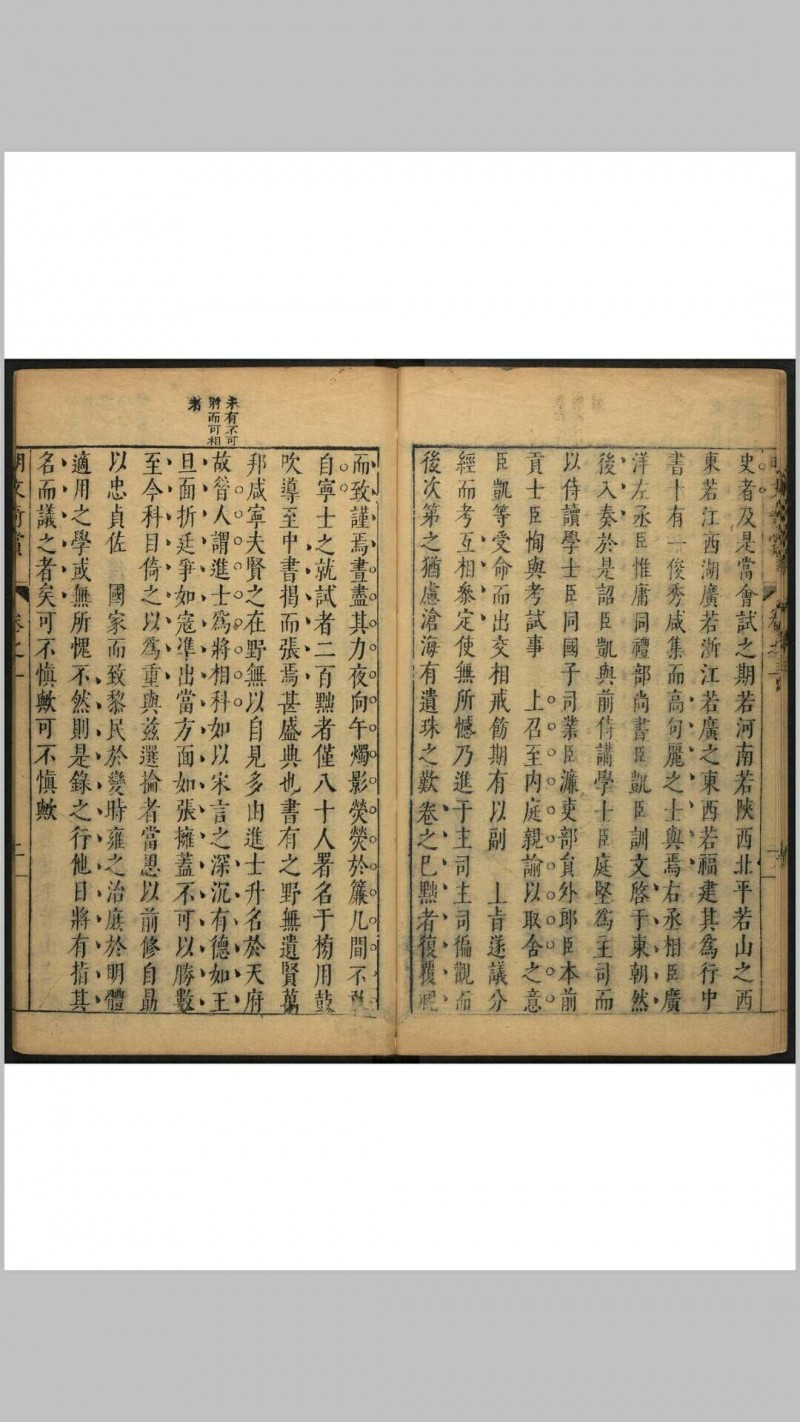 史者及是當會試之期若河南若陝西北平若山之西
東若江西湖廣若浙江若廣之東西若福建其為行中
書十有一俊秀咸集而高句麗之士與焉右丞相臣廣
洋左丞臣惟庸同禮部尚書臣凱臣訓文啓于東朝然
後入奏於是詔臣凱與前侍講學士臣庭堅為主司而
以侍讀學士臣同國子司業臣濂吏部員外郎臣本前
貢士臣恂與考試事　上召至内庭親諭以取舍之意
臣凱等受命而出交相戒飭期有以副　上旨遂議分
經而考互相叅定使無所憾乃進于主司主司徧觀而
後次第之猶慮滄海有遺珠之歎卷之已㸃者復覆視
而致謹焉晝盡其力夜向午燭影熒熒於簾几間不
自寧士之就試者二百㸃者僅八十人署名于榜用鼓
吹導至中書揭而張焉甚盛典也書有之野無遺賢萬
邦咸寧夫賢之在野無以自見多由進士升名於天府
未有不可
將而可相
者
故晉人謂進士為將相科如以宋言之深沉有德如王
旦面折廷爭如寇準出當方面如張擁蓋不可以勝數
至今科目倚之以為重與茲選掄者當思以前修自勗
以忠貞佐　國家而致黎民於變時雍之治庶於明體
適用之學或無所愧不然則是錄之行他日將有指其
名而議之者矣可不慎歟可不慎歟
明文奇賞　卷之一　二